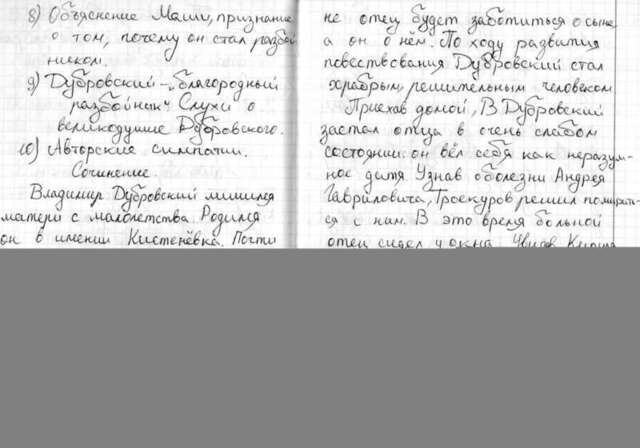 8) Объяснение Маши, признание
о том, почему он стал разбой
ником.
9) Дубровский - "благородный
разбойник" Слухи о
великодушие Дубровского.
10) Авторские симпатии.
Сочинение.
Владимир Дубровский лишился
матери с малолетства. Родился
он в имении Кистенёвка. Почти
не отец будет заботиться о сыне,
а он о нём. По ходу развития
повествования Дубровский стал
храбрым, решительным человеком
Приехав домой, В Дубровский
застал отца в очень слабом
состоянии. он вёл себя как неразум-
ное дитя Узнав о болезни Андрея
Гавриловича, Троекуров решил помирить-
ся с ним. В это время больной
отец сидел у окна